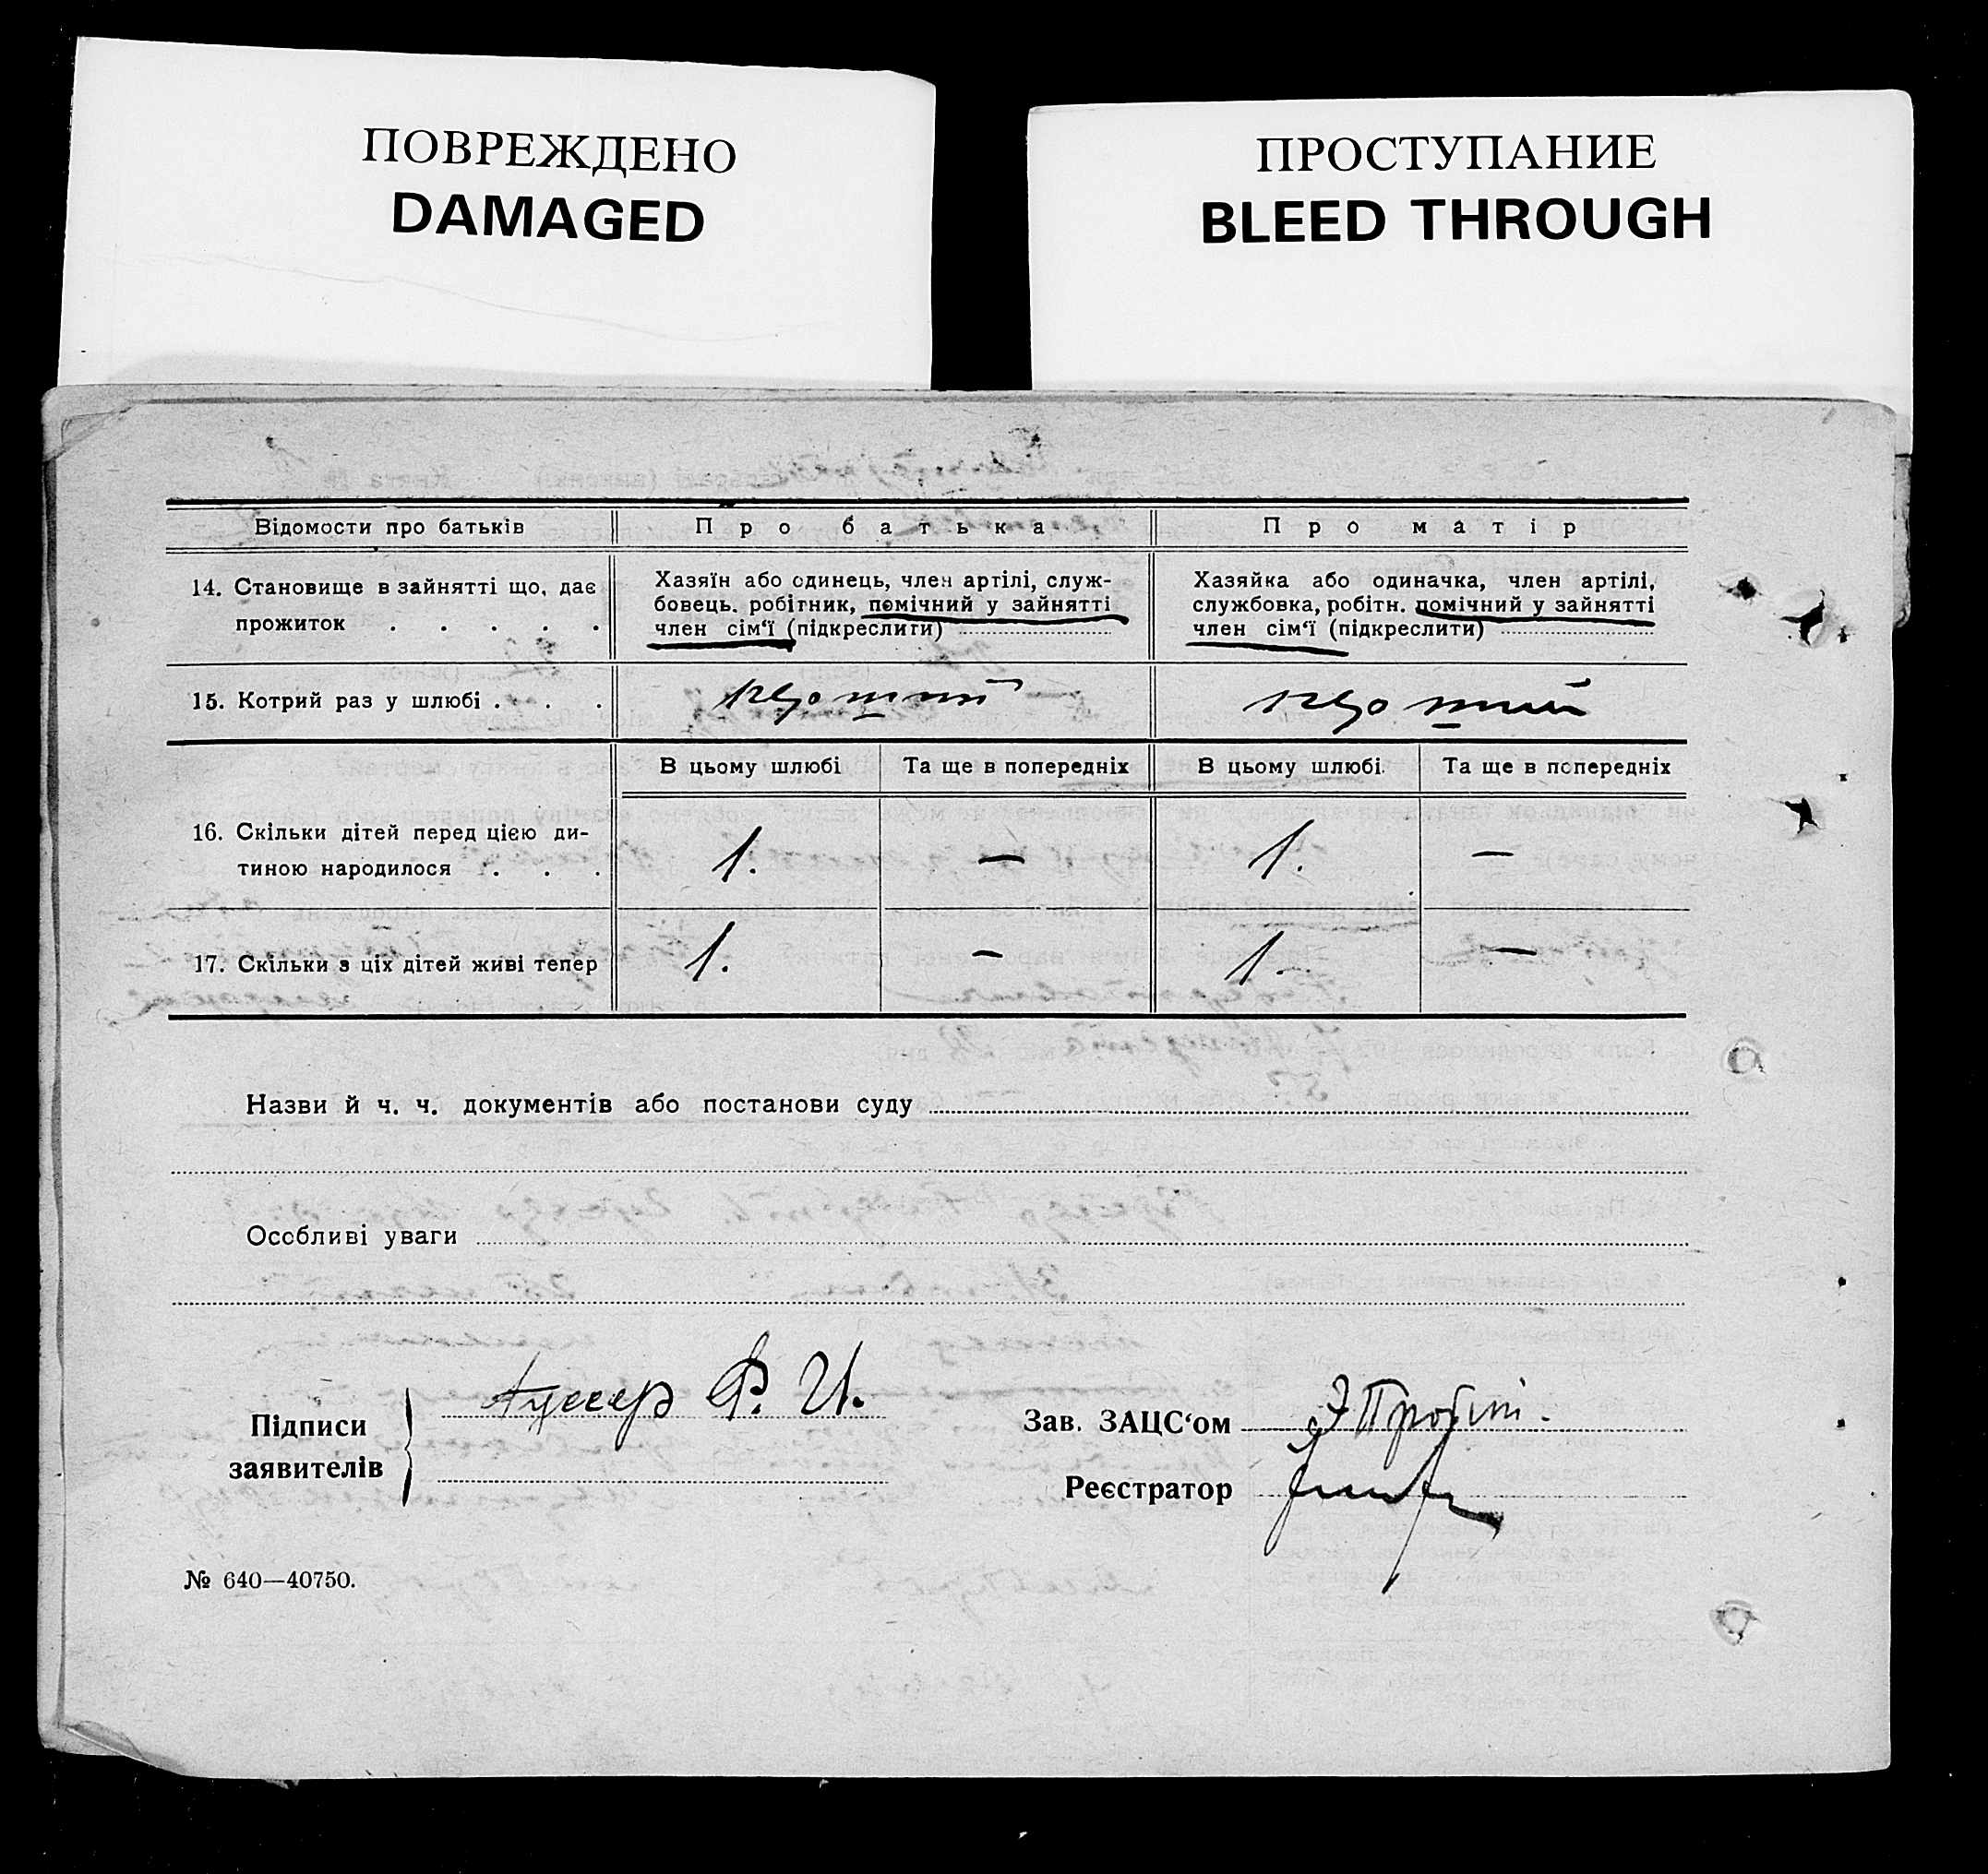 ПОВРЕЖДЕНО
DAMAGED
ПРОСТУПАНИЕ
BLEED THROUGH
Відомости про батьків
Про батька
Про матір
14. Становище в зайнятті що, дає
прожиток . . . . .
Хазяїн або одинець, член артілі, служ-
бовець. робітник, помічний у зайнятті
член сім'ї (підкреслити)
Хазяйка або одиначка, член артілі,
службовка, робітн. помічний у зайнятті
член сім'ї (підкреслити)
15. Котрий раз у шлюбі . . .
В цьому шлюбі
Та ще в попередніх
В цьому шлюбі
Та ще в попередніх
16. Скільки дітей перед цією ди-
тиною народилося . . .
1.
—
1.
—
17. Скільки з ціх дітей живі тепер
1.
—
1.
—
Назви й ч. ч. документів або постанови суду
Особливі уваги
Підписи
заявителів
Ф. И.
Зав. ЗАЦС'ом
Реєстратор
№ 640—40750.